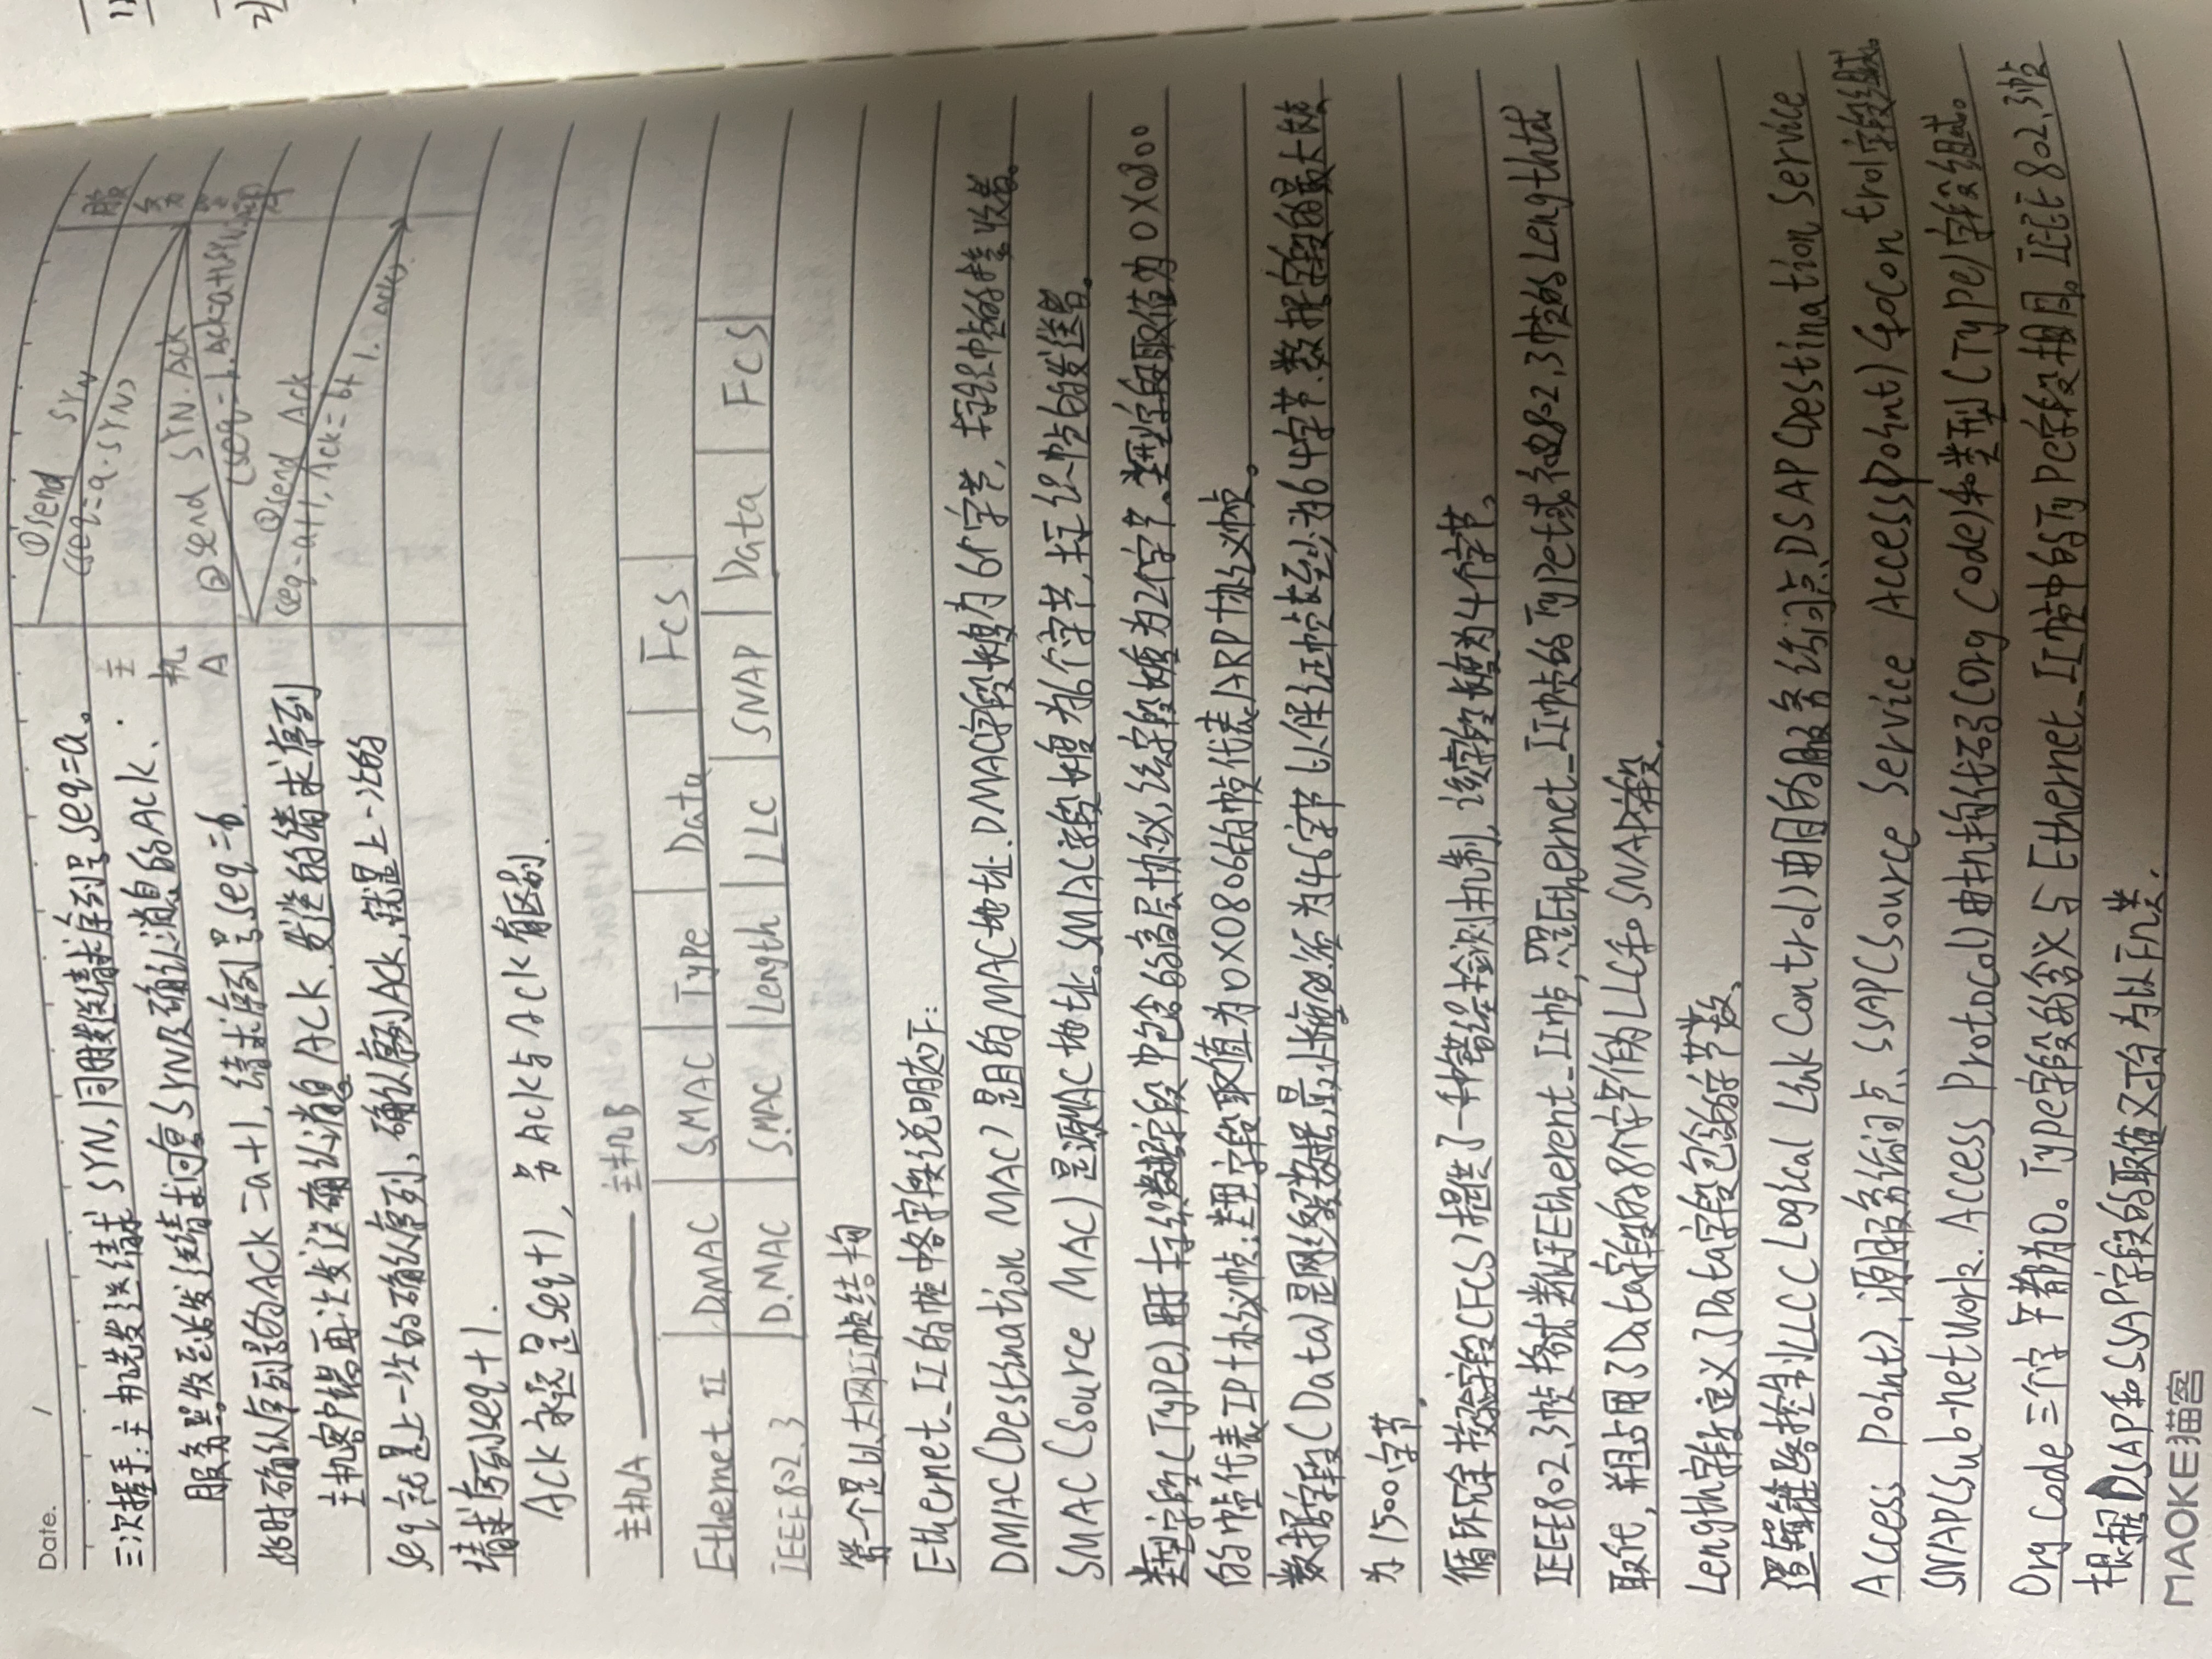 Date. /
三次握手:主机先发送请求SYN,同时发送请求序列号seq=a。
服务器收到发送请求SYN及确认消息的Ack.
此时确认序列号的ACK=a+1,请求序列号seq=b.
主机客户端再次发送确认消息ACK.发送的请求序列
seq就是上一次的确认序列,确认序列Ack,就是上一次的
请求序列seq+1.
Ack永远是seq+1,与Ack与ACK有区别.
主机A
服务器
①send SYN
(seq=a.SYN)
②send SYN.Ack
(seq=b.Ack=a+1
③send Ack
(seq=a+1,Ack=b+1.Ack)
主机A —— 主机B
Ethernet_II | DMAC | SMAC | Type | Data | FCS
IEEE802.3 | D.MAC | SMAC | Length | LLC | SNAP | Data | FCS
第一个是以太网II帧结构
Ethernet_II的帧中各字段说明如下:
DMAC(Destination MAC)是目的MAC地址.DMAC字段长度为6个字节,标识帧的接收者。
SMAC(Source MAC)是源MAC地址.SMAC字段长度为6个字节,标识帧的发送者。
类型字段(Type)用于标识数据字段中包含的高层协议,该字段长度为2个字节.类型字段取值为0X0800
的帧代表IP协议帧;类型字段取值为0X0806的帧代表ARP协议帧。
数据字段(Data)是网络层数据,最小长度必须为46字节以保证帧长至少为64字节,数据字段的最大长度
为1500字节.
循环冗余校验字段(FCS)提供了一种错误检测机制,该字段长度为4个字节。
IEEE802.3帧格式类似Ethernet_II帧,只是Ethernet_II帧的Type域被802.3帧的Length域
取代,并且占用了Data字段的8个字节作为LLC和SNAP字段.
Length字段定义了Data字段包含的字节数.
逻辑链路控制LLC(Logical Link Control)由目的服务访问点DSAP(Destination Service
Access Point),源服务访问点SSAP(Source Service Access Point)和Control字段组成。
SNAP(Sub-network Access Protocol)由机构代码(Org Code)和类型(Type)字段组成。
Org Code三个字节都为0。Type字段的含义与Ethernet_II帧中的Type字段相同。IEEE802.3帧
根据DSAP和SSAP字段的取值又可分为以下几类.
MAOKE猫客